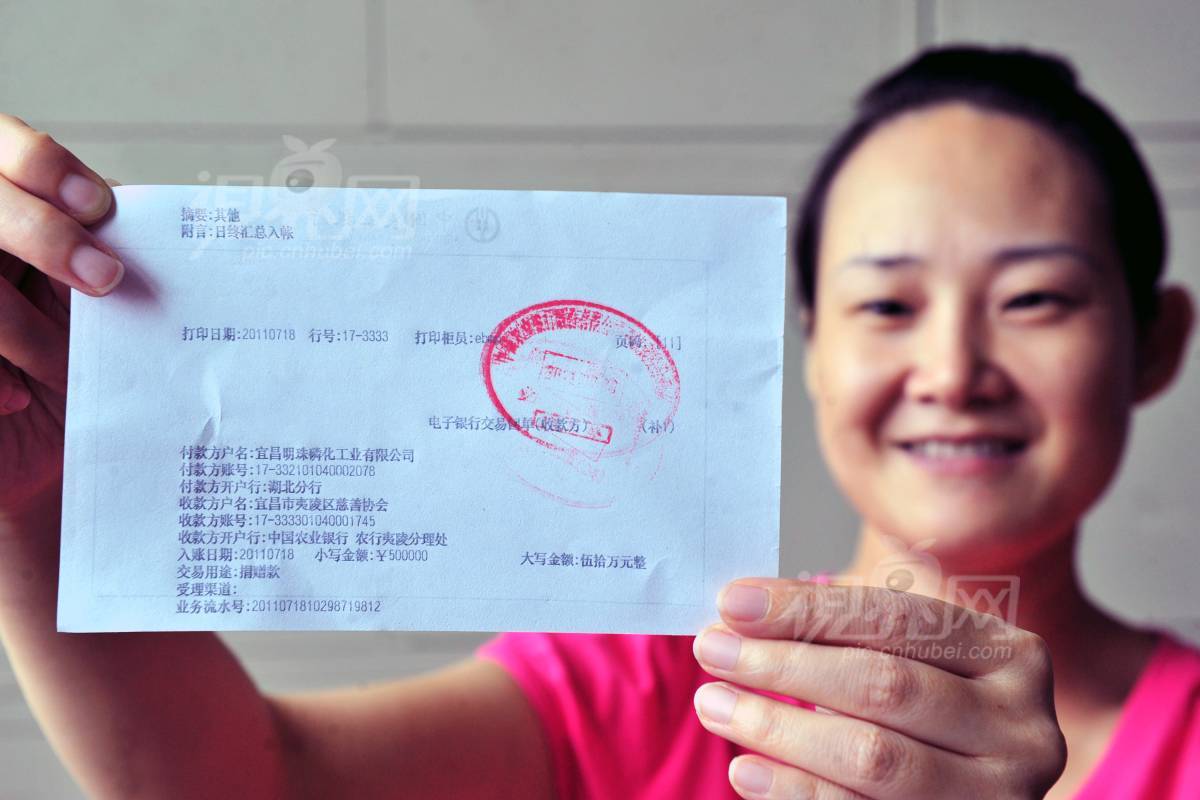 摘要:其他
附言:日终汇总入帐
视界网
pic.cnhubei.com
打印日期:20110718 行号:17-3333 打印柜员: 页码:[1]
电子银行交易回单(收款方) (补)
付款方户名:宜昌明珠磷化工业有限公司
付款方账号:17-332101040002078
付款方开户行:湖北分行
收款方户名:宜昌市夷陵区慈善协会
收款方账号:17-333301040001745
收款方开户行:中国农业银行 农行夷陵分理处
入账日期:20110718 小写金额:￥500000 大写金额:伍拾万元整
交易用途:捐赠款
受理渠道:
业务流水号:2011071810298719812
视界网
pic.cnhubei.com